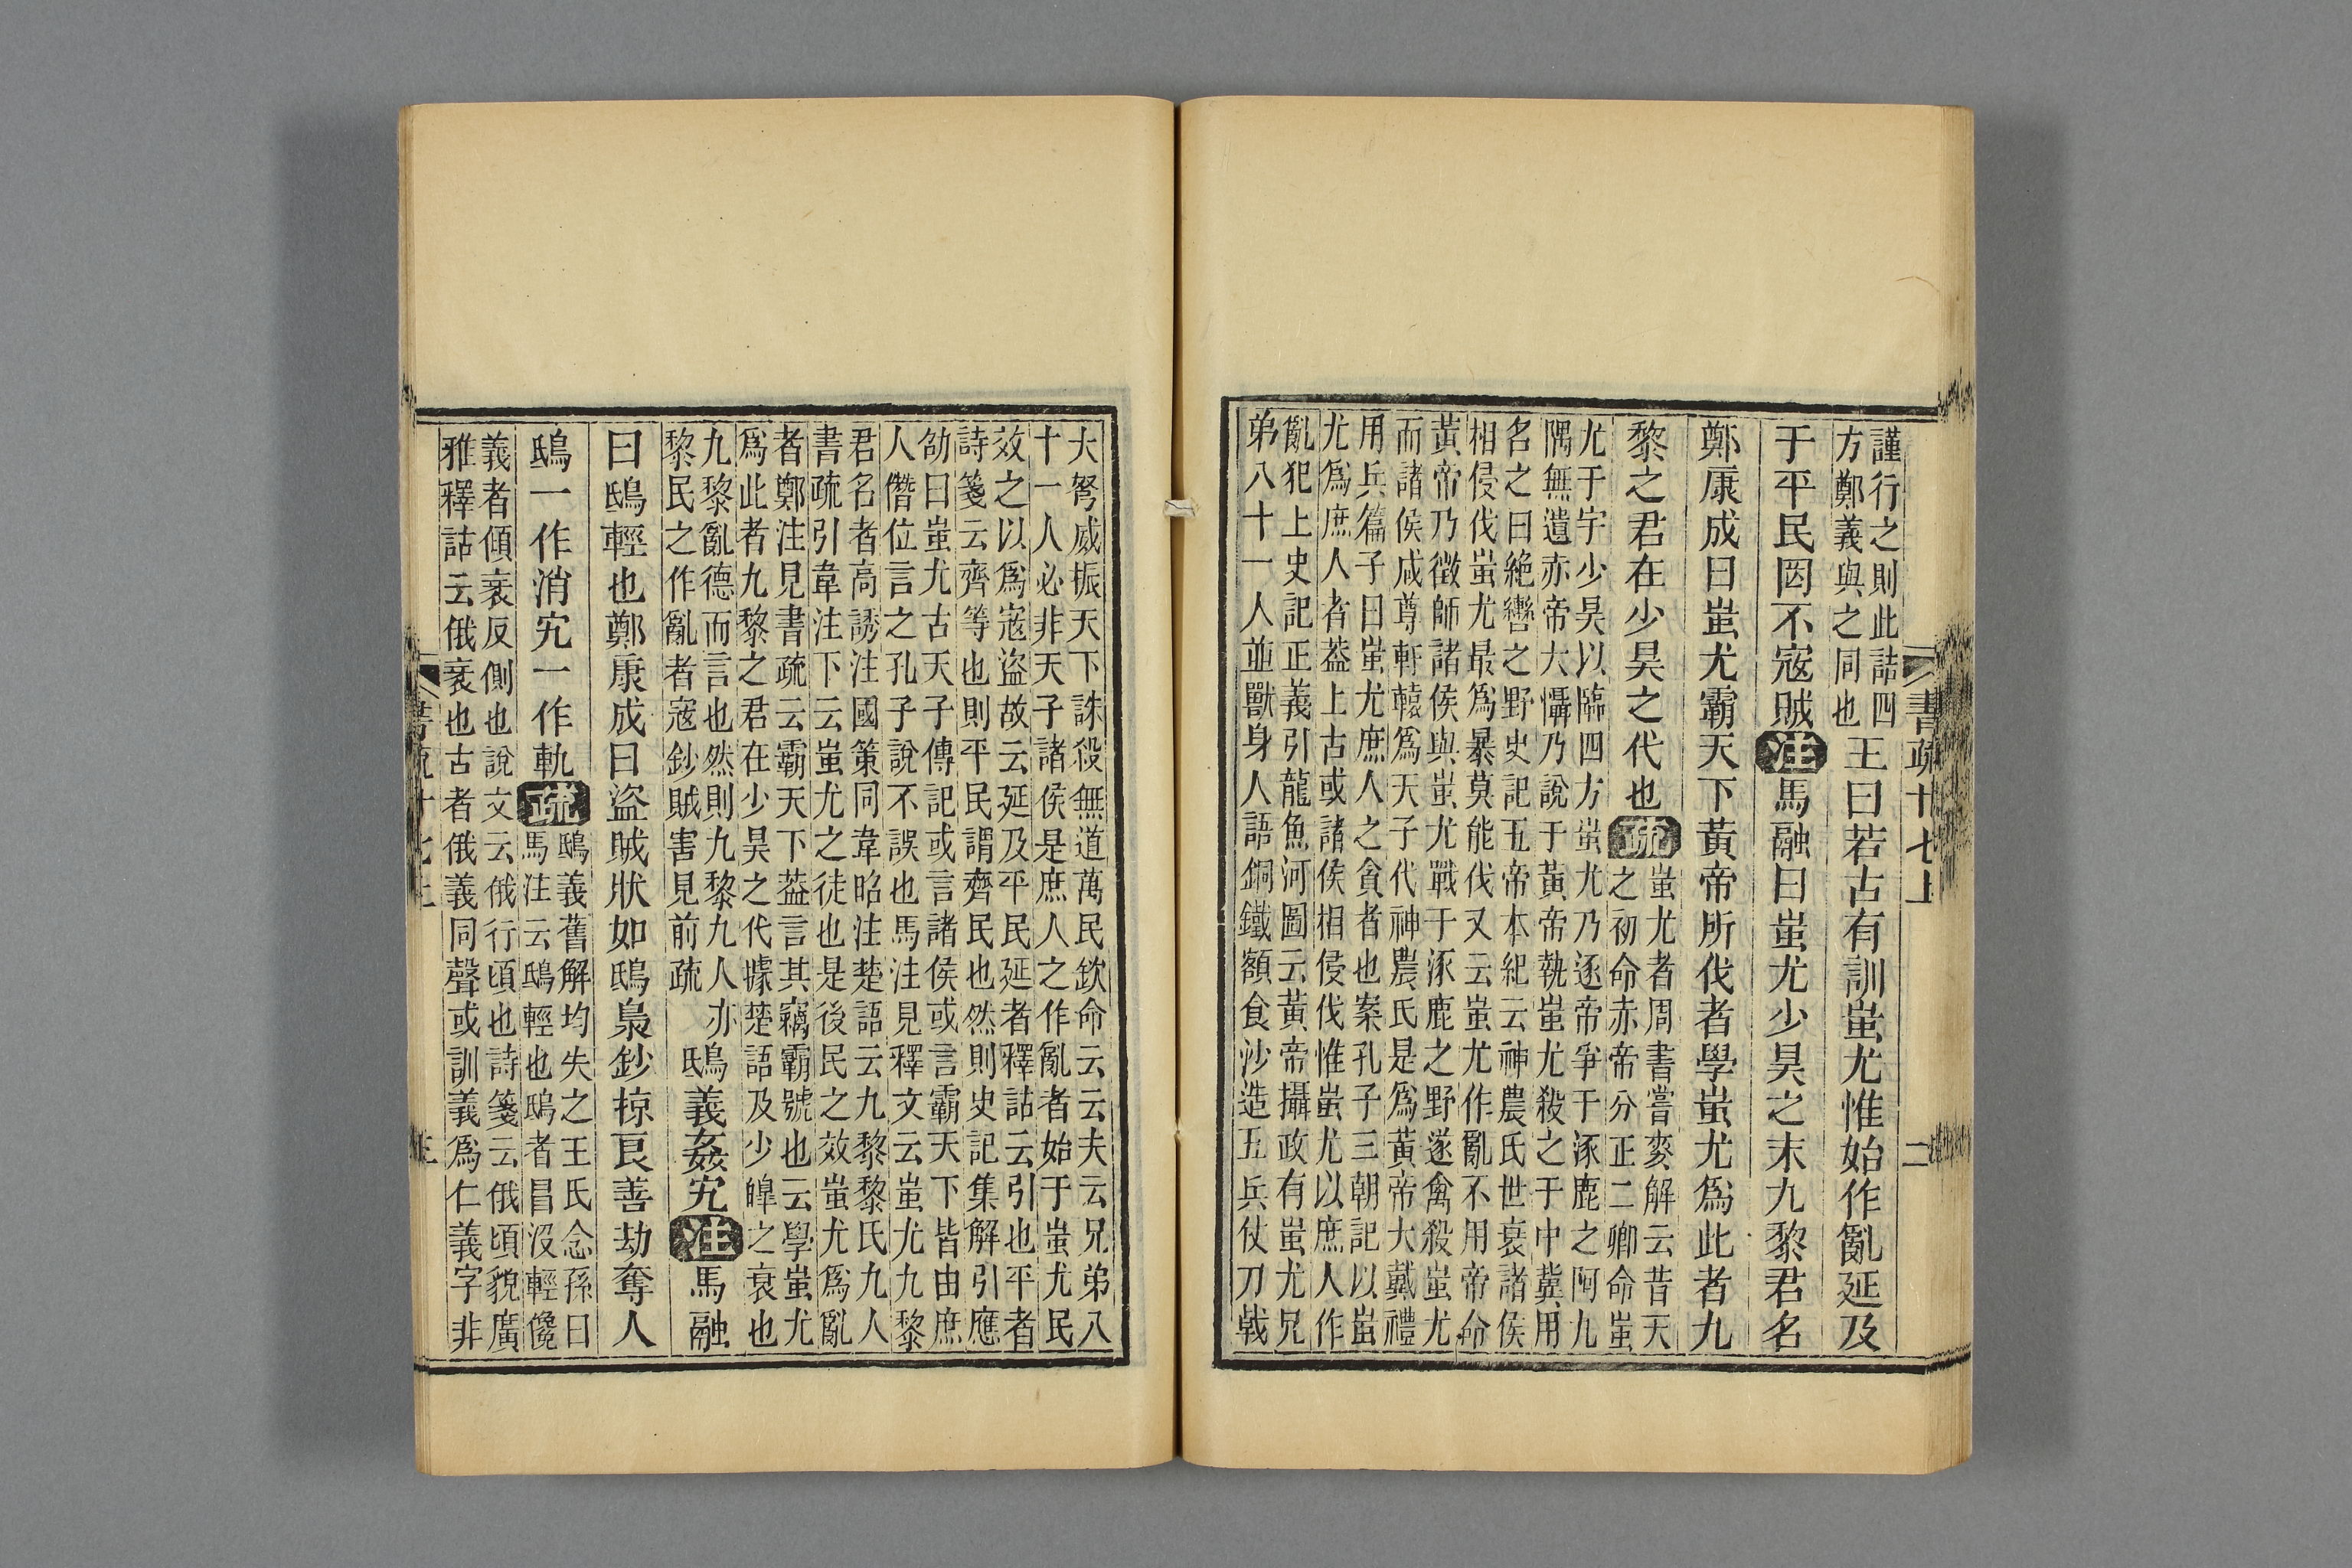 書疏十七上
二
謹行之則此誥四
方鄭義與之同也
王曰若古有訓蚩尤惟始作亂延及
于平民罔不寇賊注馬融曰蚩尤少昊之末九黎君名
鄭康成曰蚩尤霸天下黃帝所伐者學蚩尤爲此者九
黎之君在少昊之代也疏
蚩尤者周書嘗麥解云昔天
之初命赤帝分正二卿命蚩
尤于宇少昊以臨四方蚩尤乃逐帝爭于涿鹿之阿九
隅無遺赤帝大懾乃說于黃帝執蚩尤殺之于中冀用
名之曰絶轡之野史記五帝本紀云神農氏世衰諸侯
相侵伐蚩尤最爲暴莫能伐又云蚩尤作亂不用帝命
黃帝乃徵師諸侯與蚩尤戰于涿鹿之野遂禽殺蚩尤
而諸侯咸尊軒轅爲天子代神農氏是爲黃帝大戴禮
用兵篇子曰蚩尤庶人之貪者也案孔子三朝記以蚩
尤爲庶人者葢上古或諸侯相侵伐惟蚩尤以庶人作
亂犯上史記正義引龍魚河圖云黃帝攝政有蚩尤兄
弟八十一人並獸身人語銅鐵額食沙造五兵仗刀戟
大弩威振天下誅殺無道萬民欽命云云夫云兄弟八
十一人必非天子諸侯是庶人之作亂者始于蚩尤民
效之以爲寇盜故云延及平民延者釋詁云引也平者
詩箋云齊等也則平民謂齊民也然則史記集解引應
劭曰蚩尤古天子傳記或言諸侯或言霸天下皆由庶
人僭位言之孔子說不誤也馬注見釋文云蚩尤九黎
君名者高誘注國策同韋昭注楚語云九黎黎氏九人
書疏引韋注下云蚩尤之徒也是後民之效蚩尤爲亂
者鄭注見書疏云霸天下葢言其竊霸號也云學蚩尤
爲此者九黎之君在少昊之代據楚語及少皥之衰也
九黎亂德而言也然則九黎九人亦
黎民之作亂者寇鈔賊害見前疏
鴟義姦宄注馬融
曰鴟輕也鄭康成曰盜賊狀如鴟梟鈔掠良善劫奪人
鴟一作消宄一作軌疏
鴟義舊解均失之王氏念孫曰
馬注云鴟輕也鴟者冒沒輕儳
義者傾衺反側也說文云俄行頃也詩箋云俄頃貌廣
雅釋詁云俄衺也古者俄義同聲或訓義爲仁義字非